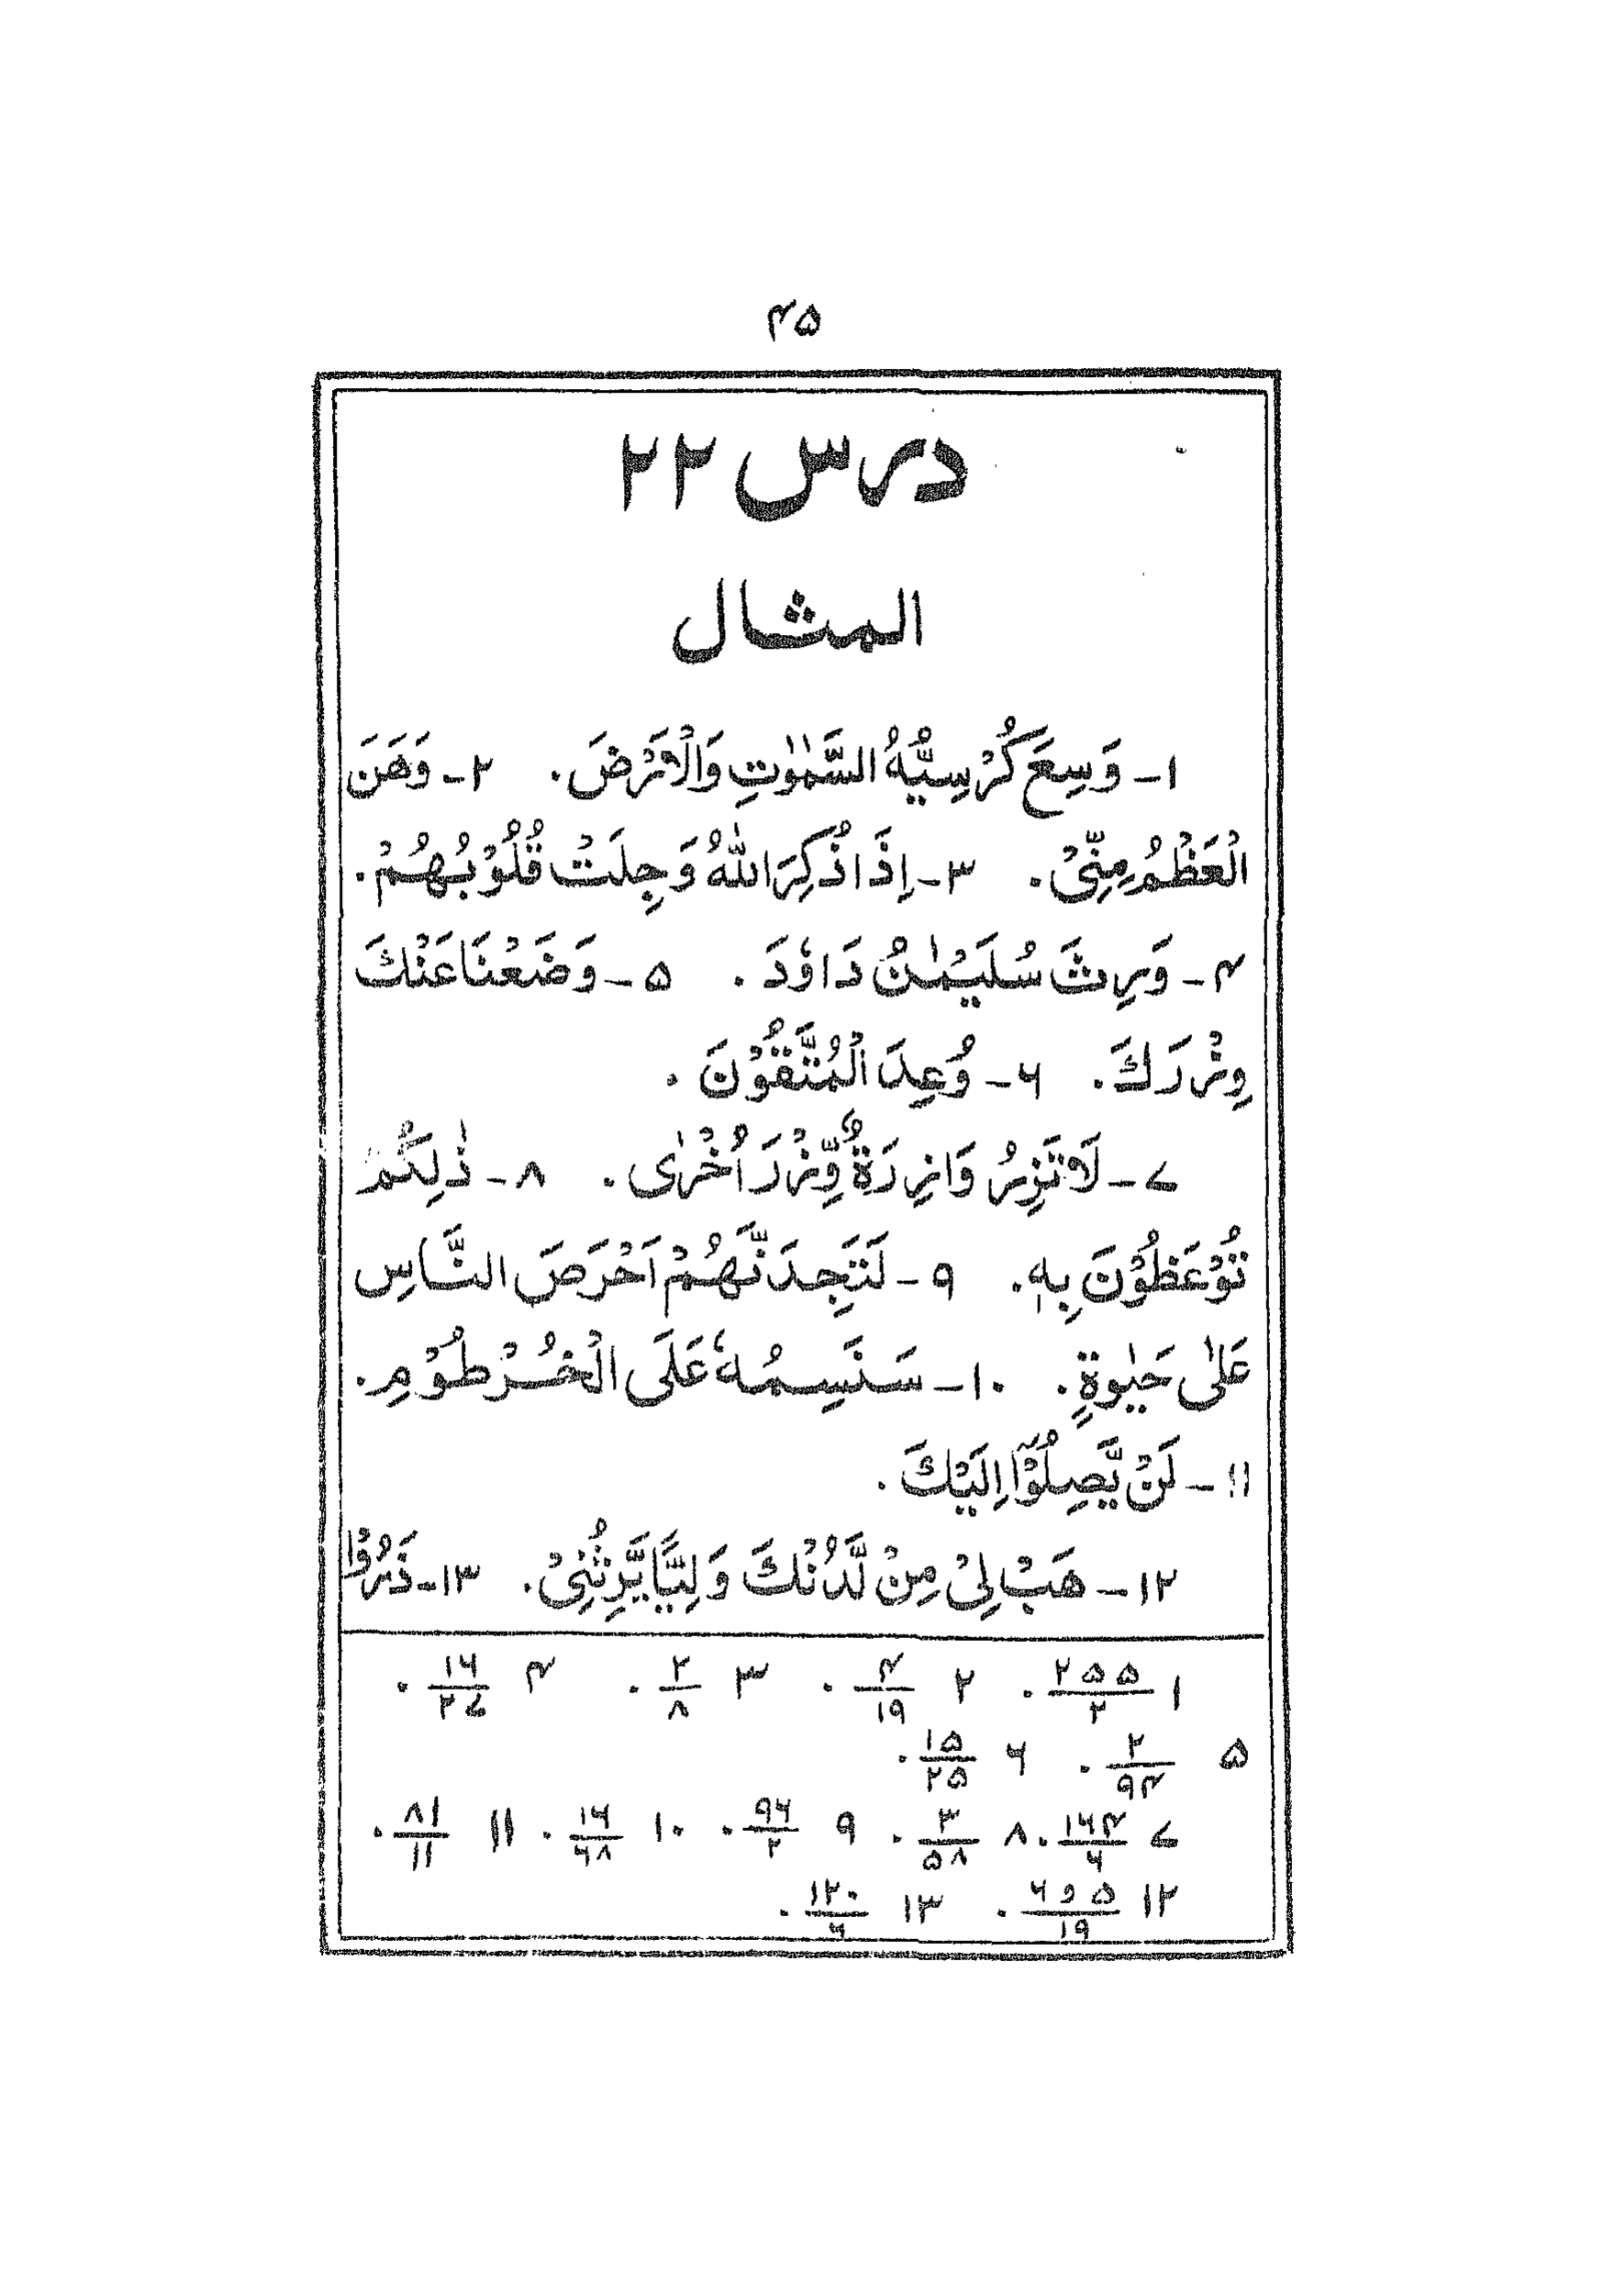 ۴۵
درس ۲۲
المثال
۱- وَسِعَ كُرْسِيُّهُ السَّمٰوٰتِ وَالْاَرْضَ. ۲- وَهَنَ
الْعَظْمُ مِنِّيْ. ۳- اِذَا ذُكِرَ اللّٰهُ وَجِلَتْ قُلُوْبُهُمْ.
۴- وَرِثَ سُلَيْمٰنُ دَاوٗدَ. ۵- وَضَعْنَا عَنْكَ
وِزْرَكَ. ۶- وُعِدَ الْمُتَّقُوْنَ.
۷- لَا تَزِرُ وَازِرَةٌ وِّزْرَ اُخْرٰى. ۸- ذٰلِكُمْ
تُوْعَظُوْنَ بِهٖ. ۹- لَتَجِدَنَّهُمْ اَحْرَصَ النَّاسِ
عَلٰى حَيٰوةٍ. ۱۰- سَنَسِمُهٗ عَلَى الْخُرْطُوْمِ.
۱۱- لَنْ يَّصِلُوْٓا اِلَيْكَ.
۱۲- هَبْ لِيْ مِنْ لَّدُنْكَ وَلِيًّا يَّرِثُنِيْ. ۱۳- ذَرُوْا
۱ ۲۵۵/۲. ۲ ۴/۱۹. ۳ ۲/۸. ۴ ۱۶/۲۷.
۵ ۲/۹۴. ۶ ۱۵/۲۵.
۷ ۱۶۴/۶. ۸ ۳/۵۸. ۹ ۹۶/۲. ۱۰ ۱۶/۶۸. ۱۱ ۸۱/۱۱.
۱۲ ۵ و ۶/۱۹. ۱۳ ۱۲۰/۶.